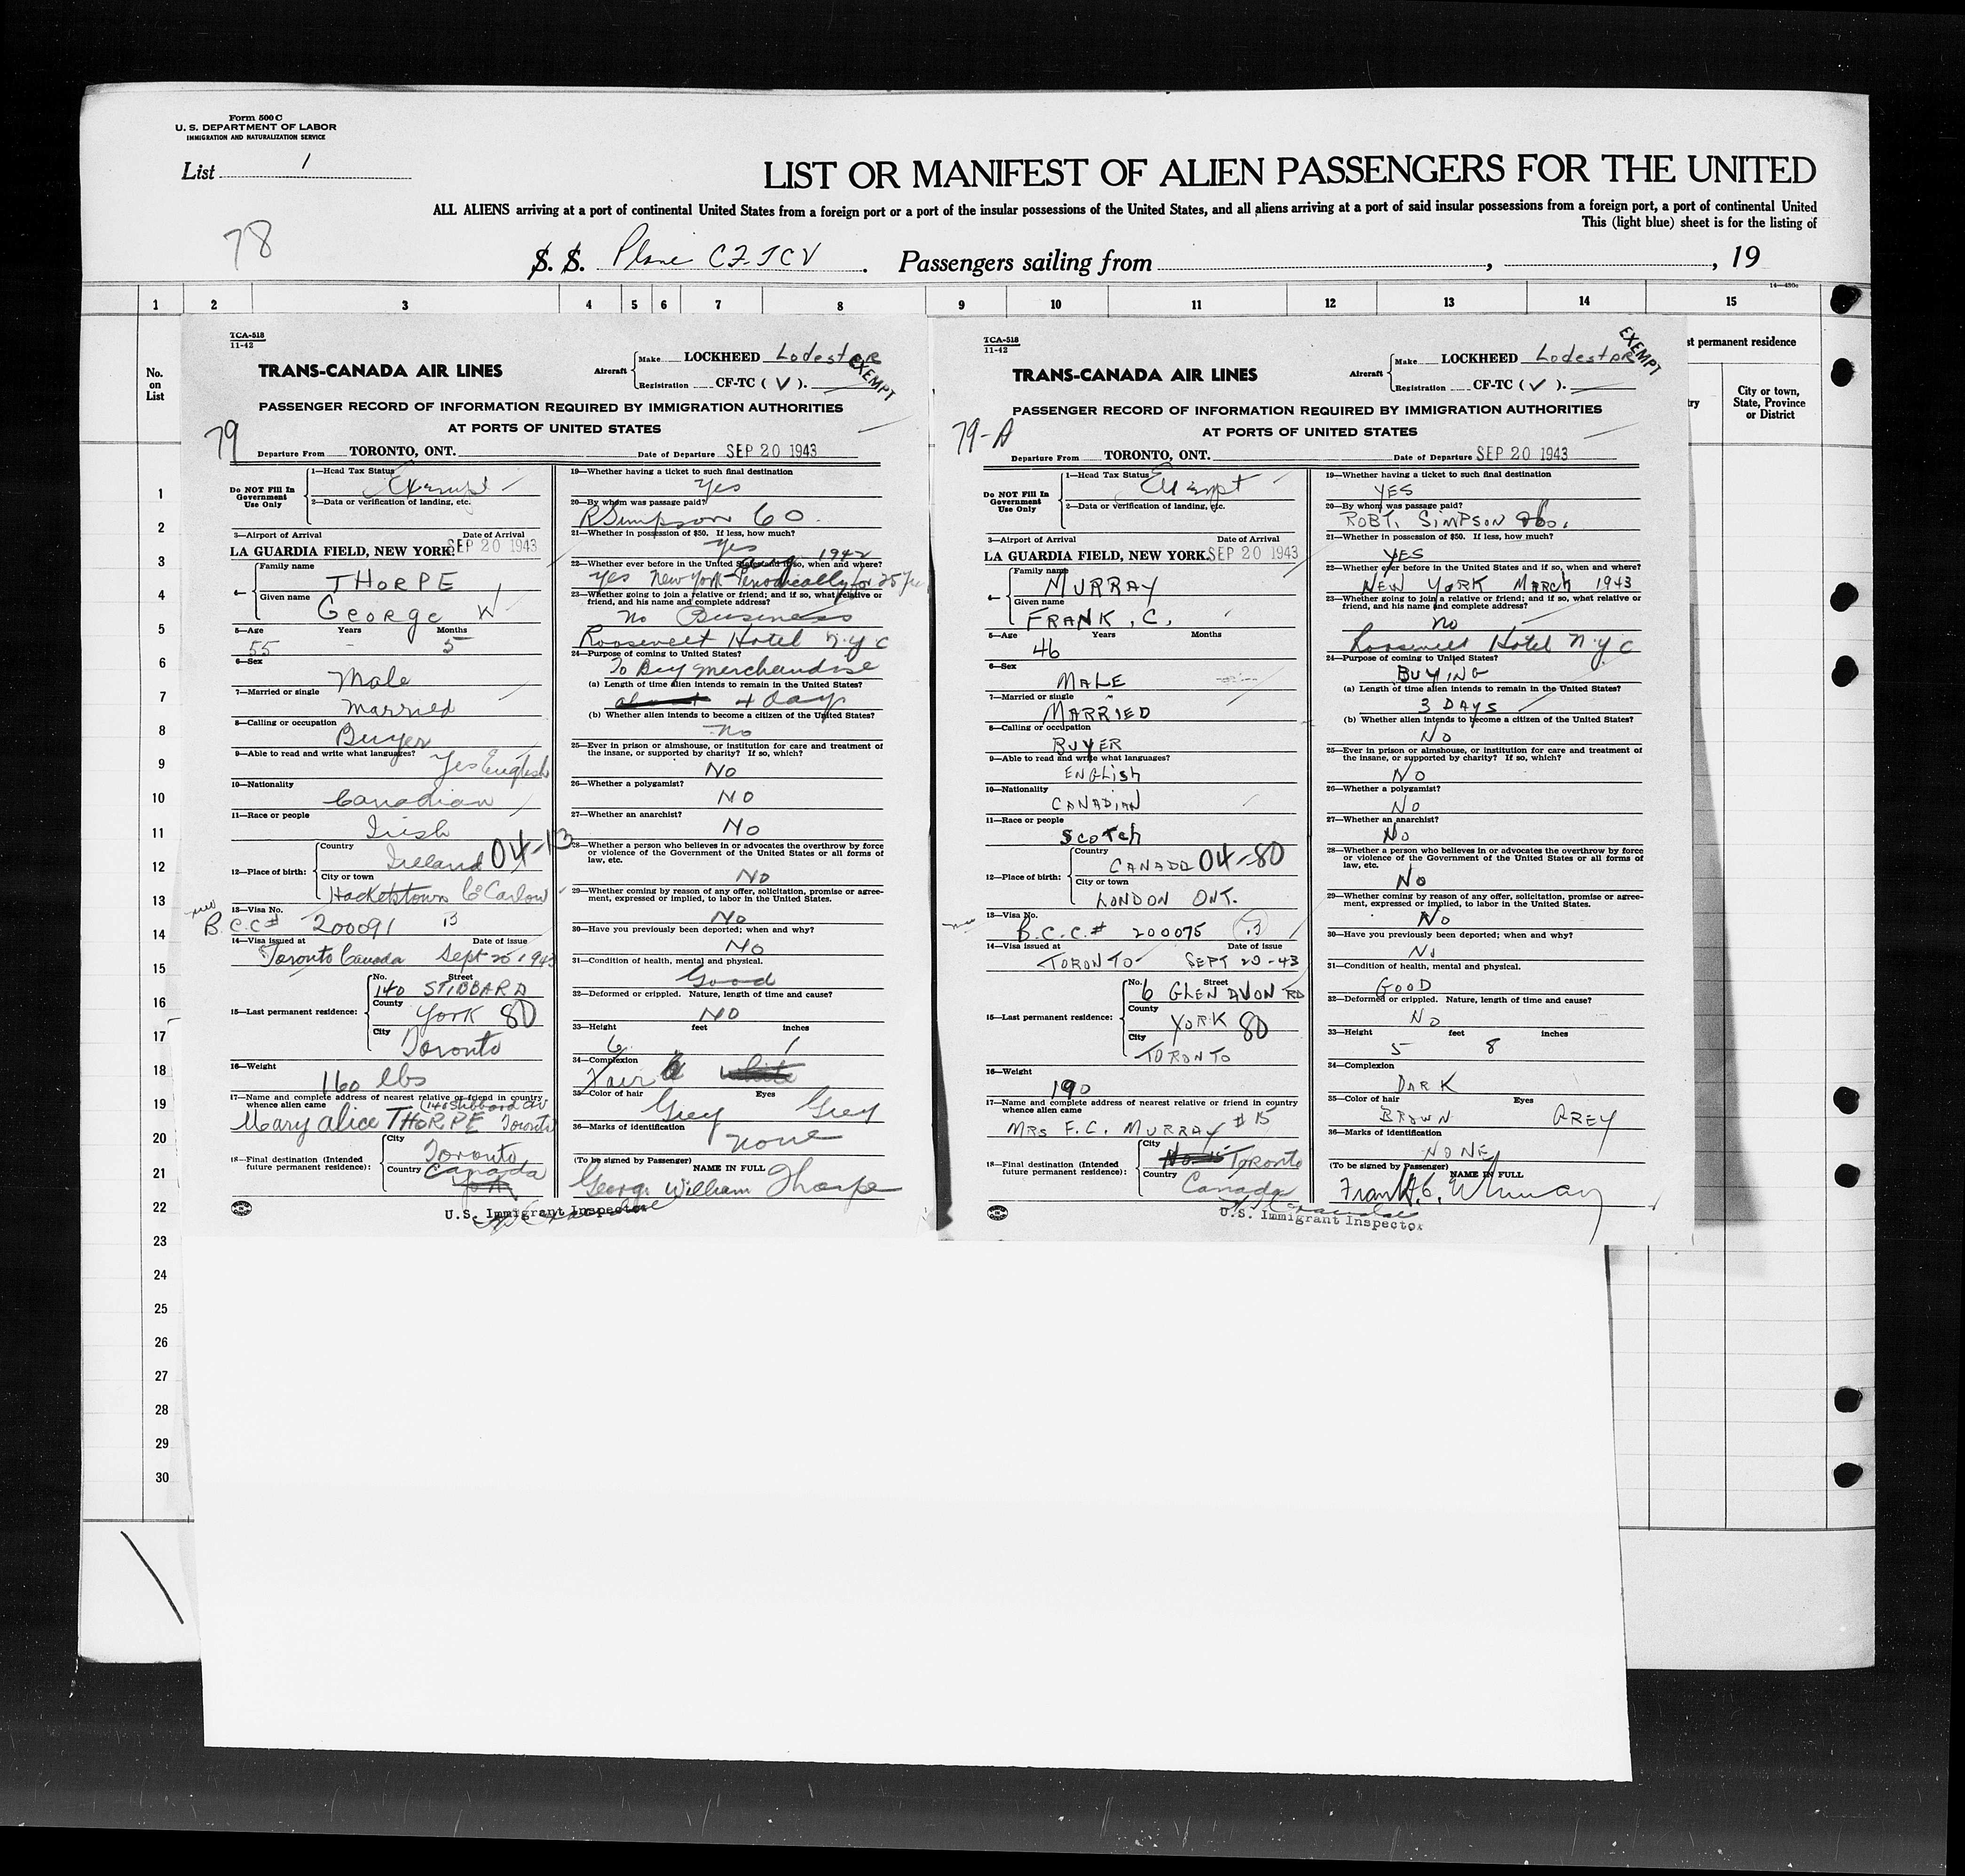 Form 500 C
U. S. DEPARTMENT OF LABOR
IMMIGRATION AND NATURALIZATION SERVICE
List 1
LIST OR MANIFEST OF ALIEN PASSENGERS FOR THE UNITED
ALL ALIENS arriving at a port of continental United States from a foreign port or a port of the insular possessions of the United States, and all aliens arriving at a port of said insular possessions from a foreign port, a port of continental United
This (light blue) sheet is for the listing of
78
S. S. Plane CF-TCV. Passengers sailing from , , 19
14—430c
1 2 3 4 5 6 7 8 9 10 11 12 13 14 15
No.
on
List
st permanent residence
ry
City or town,
State, Province
or District
1
2
3
4
5
6
7
8
9
10
11
12
13
14
15
16
17
18
19
20
21
22
23
24
25
26
27
28
29
30
TCA-518
11-42
TRANS-CANADA AIR LINES
Aircraft
Make LOCKHEED Lodestar
Registration CF-TC ( V ).
EXEMPT
PASSENGER RECORD OF INFORMATION REQUIRED BY IMMIGRATION AUTHORITIES
AT PORTS OF UNITED STATES
79
Departure From TORONTO, ONT. Date of Departure SEP 20 1943
Do NOT Fill In
Government
Use Only
1—Head Tax Status Exempt
2—Data or verification of landing, etc.
3—Airport of Arrival Date of Arrival
LA GUARDIA FIELD, NEW YORK. SEP 20 1943
4—
Family name
THORPE
Given name
George W
5—Age Years Months
55 - 5
6—Sex
Male
7—Married or single
Married
8—Calling or occupation
Buyer
9—Able to read and write what languages?
Yes English
10—Nationality
Canadian
11—Race or people
Irish
12—Place of birth:
Country
Ireland 04-13
City or town
Hacketstown Co Carlow
13—Visa No.
B.C.C# 200091 13
14—Visa issued at Date of issue
Toronto Canada Sept 20 1943
15—Last permanent residence:
No. Street
140 STIBBARD
County
York 80
City
Toronto
16—Weight
160 lbs
17—Name and complete address of nearest relative or friend in country
whence alien came (140 Stibbard Av
Mary Alice THORPE Toronto
18—Final destination (Intended
future permanent residence):
City
Toronto
Country
Canada
19—Whether having a ticket to such final destination
Yes
20—By whom was passage paid?
R Simpson Co.
21—Whether in possession of $50. If less, how much?
Yes
1942
22—Whether ever before in the United States and if so, when and where?
Yes New York Periodically for 25 yrs
23—Whether going to join a relative or friend; and if so, what relative or
friend, and his name and complete address?
No Business
Roosevelt Hotel N.Y C
24—Purpose of coming to United States?
To Buy Merchandise
(a) Length of time alien intends to remain in the United States?
4 days
(b) Whether alien intends to become a citizen of the United States?
No
25—Ever in prison or almshouse, or institution for care and treatment of
the insane, or supported by charity? If so, which?
No
26—Whether a polygamist?
NO
27—Whether an anarchist?
No
28—Whether a person who believes in or advocates the overthrow by force
or violence of the Government of the United States or all forms of
law, etc.
NO
29—Whether coming by reason of any offer, solicitation, promise or agree-
ment, expressed or implied, to labor in the United States.
No
30—Have you previously been deported; when and why?
NO
31—Condition of health, mental and physical.
Good
32—Deformed or crippled. Nature, length of time and cause?
NO
33—Height feet inches
6 1
34—Complexion
Fair white
35—Color of hair Eyes
Grey Grey
36—Marks of identification
none
(To be signed by Passenger) NAME IN FULL
George William Thorpe
U.S. Immigrant Inspector
TCA-518
11-42
TRANS-CANADA AIR LINES
Aircraft
Make LOCKHEED Lodestar
Registration CF-TC ( V ).
EXEMPT
PASSENGER RECORD OF INFORMATION REQUIRED BY IMMIGRATION AUTHORITIES
AT PORTS OF UNITED STATES
79-A
Departure From TORONTO, ONT. Date of Departure SEP 20 1943
Do NOT Fill In
Government
Use Only
1—Head Tax Status Exempt
2—Data or verification of landing, etc.
3—Airport of Arrival Date of Arrival
LA GUARDIA FIELD, NEW YORK. SEP 20 1943
4—
Family name
MURRAY
Given name
FRANK .C.
5—Age Years Months
46
6—Sex
MALE
7—Married or single
MARRIED
8—Calling or occupation
BUYER
9—Able to read and write what languages?
ENGLISH
10—Nationality
CANADIAN
11—Race or people
SCOTCH
12—Place of birth:
Country
CANADA 04-80
City or town
LONDON ONT.
13—Visa No.
B.C.C.# 200075 13
14—Visa issued at Date of issue
TORONTO SEPT 20-43
15—Last permanent residence:
No. Street
6 GLEN AVON RD
County
YORK 80
City
TORONTO
16—Weight
190
17—Name and complete address of nearest relative or friend in country
whence alien came
MRS F.C. MURRAY #15
18—Final destination (Intended
future permanent residence):
City
Toronto
Country
Canada
19—Whether having a ticket to such final destination
YES
20—By whom was passage paid?
ROBT. SIMPSON Co.
21—Whether in possession of $50. If less, how much?
YES
22—Whether ever before in the United States and if so, when and where?
NEW YORK MARCH 1943
23—Whether going to join a relative or friend; and if so, what relative or
friend, and his name and complete address?
No
Roosevelt Hotel N Y C
24—Purpose of coming to United States?
BUYING
(a) Length of time alien intends to remain in the United States?
3 DAYS
(b) Whether alien intends to become a citizen of the United States?
No
25—Ever in prison or almshouse, or institution for care and treatment of
the insane, or supported by charity? If so, which?
No
26—Whether a polygamist?
No
27—Whether an anarchist?
No
28—Whether a person who believes in or advocates the overthrow by force
or violence of the Government of the United States or all forms of
law, etc.
No
29—Whether coming by reason of any offer, solicitation, promise or agree-
ment, expressed or implied, to labor in the United States.
No
30—Have you previously been deported; when and why?
No
31—Condition of health, mental and physical.
GOOD
32—Deformed or crippled. Nature, length of time and cause?
No
33—Height feet inches
5 8
34—Complexion
DARK
35—Color of hair Eyes
BROWN GREY
36—Marks of identification
NONE
(To be signed by Passenger) NAME IN FULL
Frank C. Murray
U.S. Immigrant Inspector